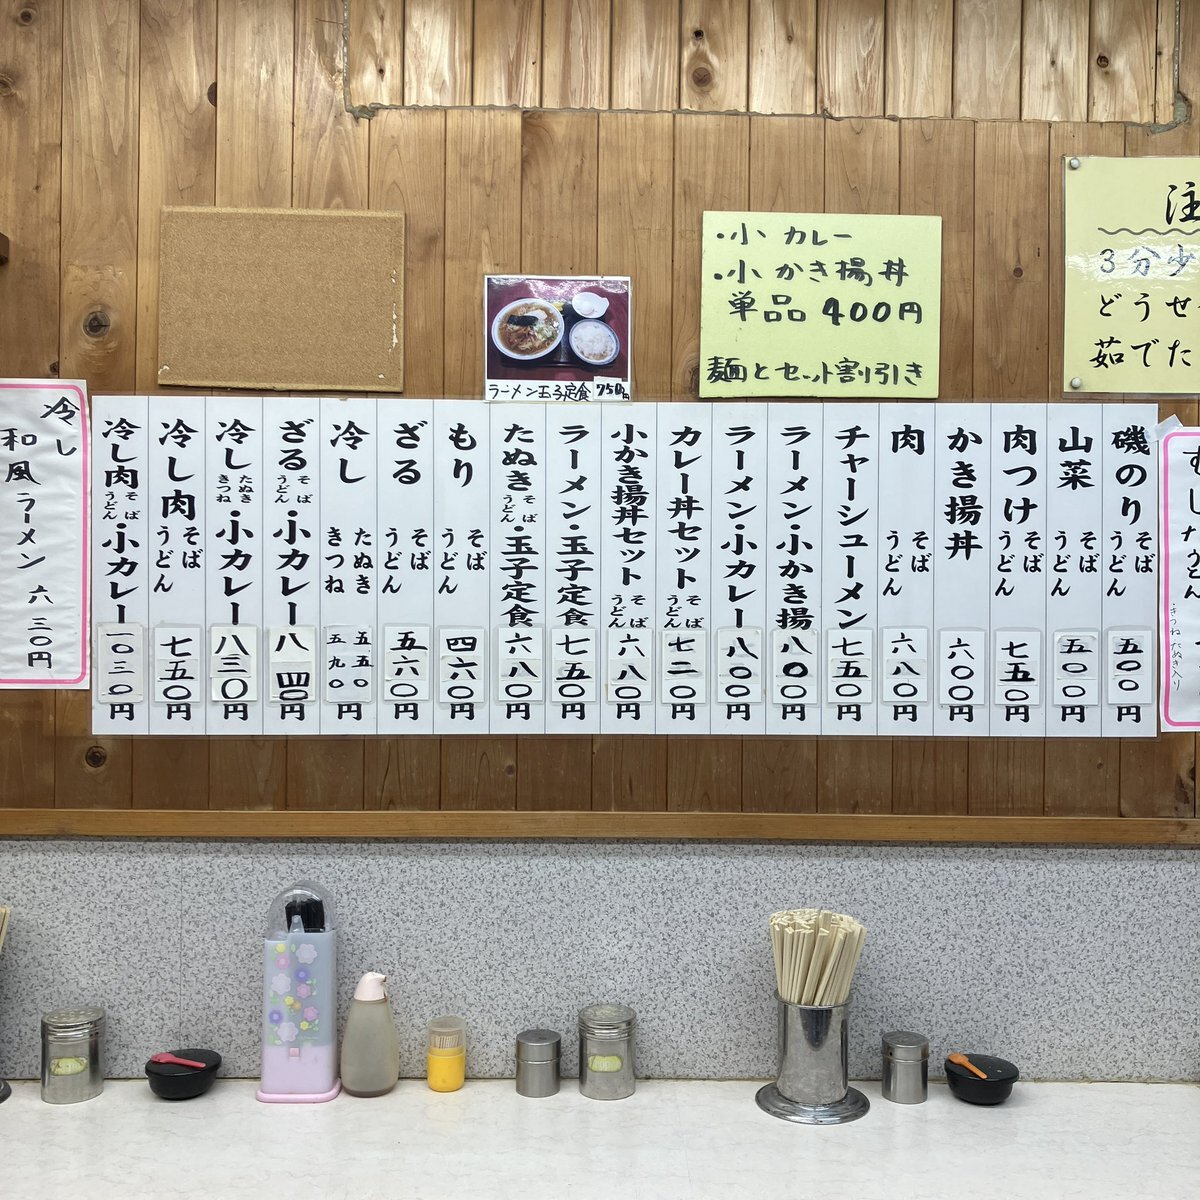 ・小 カレー
・小 かき揚丼
単品 400円
麺とセット割引き
ラーメン玉子定食 750円
注
3分少
どうせ
茹でた
磯のり そば うどん 五〇〇円
山菜 そば うどん 五〇〇円
肉つけ そば うどん 七五〇円
かき揚丼 六〇〇円
肉 そば うどん 六八〇円
チャーシューメン 七五〇円
ラーメン・小かき揚 八〇〇円
ラーメン・小カレー 八〇〇円
カレー丼セット そば うどん 七二〇円
小かき揚丼セット そば うどん 六八〇円
ラーメン・玉子定食 七五〇円
たぬき そば うどん・玉子定食 六八〇円
もり そば うどん 四六〇円
ざる そば うどん 五六〇円
冷し たぬき きつね 五五〇 五九〇円
ざる そば うどん・小カレー 八四〇円
冷し たぬき きつね・小カレー 八三〇円
冷し肉 そば うどん 七五〇円
冷し肉 そば うどん・小カレー 一〇三〇円
冷し
和風ラーメン 六三〇円
きつねたぬき入り